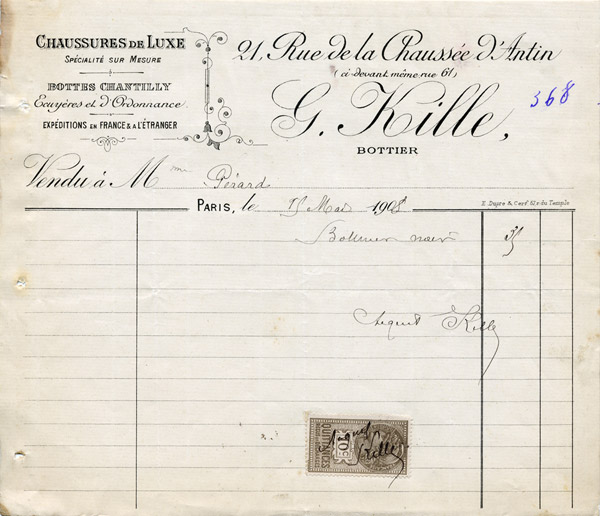 CHAUSSURES DE LUXE
SPÉCIALITÉ SUR MESURE
BOTTES CHANTILLY
Ecuyères et d'Ordonnance.
EXPÉDITIONS EN FRANCE & A L'ÉTRANGER
21, Rue de la Chaussée d'Antin
(ci-devant même rue 61)
G. Kille,
BOTTIER
368
Vendu à Mme Pérard
PARIS, le 15 Mai 1908
E. Dupre & Cerf 67, r. du Temple
Bottines noir 35
Acquit G Kille
Acquit
Kille
10c
QUITTANCES